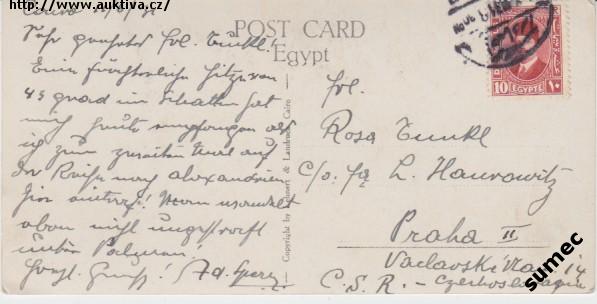 http://www.auktiva.cz/
Cairo
POST CARD
Egypt
Sehr geehrtes Frl. Tunkl!
Eine fürchterliche Hitze von
45 grad im Schatten hat
mich heute empfangen als
ich zum zweiten Mal auf
der Reise nach Alexandrien
hier eintraf! Man wandelt
eben nicht ungestraft
unter Palmen!
Herzl. Gruss!
Copyright by Lehnert & Landrock, Cairo
10 EGYPTE ١٠
Frl.
Rosa Tunkl
c/o. fa L. Haurowitz
Praha II
Vaclavské 14
C.S.R. - Czechoslovaquie
sumec